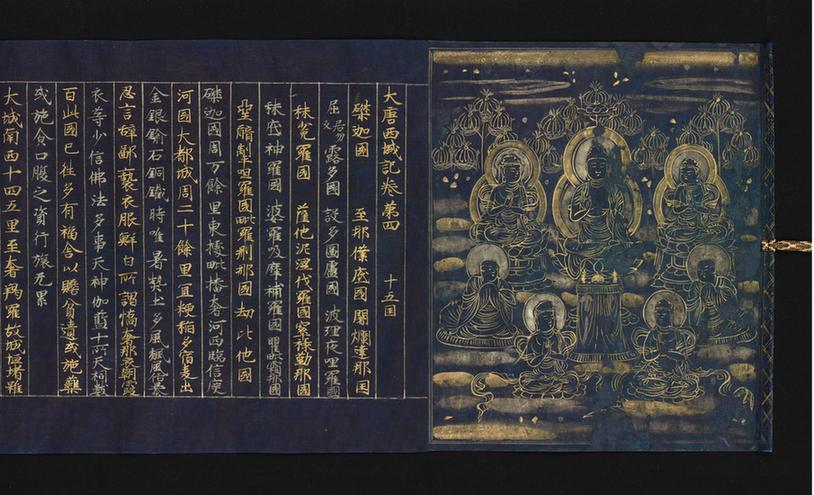 大唐西域記卷第四 十五国
磔迦國 至那僕底國 闍爛達那国
屈居勿反露多國 設多圖盧國 波理夜呾羅國
秣兔羅國 薩他泥濕伐羅國 窣祿勤那國
秣底補羅國 婆羅及摩補羅國 瞿毗霜那國
堊醯掣呾羅國 毗羅刪那國 劫比他國
磔迦國周万餘里東據毗播奢河西臨信度
河國大都城周二十餘里宜粳稻多宿麦出
金銀鍮石銅鐵時唯暑熱土多風飈風俗暴
惡言辞鄙褻衣服鮮白所謂憍奢耶朝霞
衣等少信佛法多事天神伽藍十所天祠數
百此國已往多有福舍以贍貧遺或施藥
或施食口腹之資行旅无累
大城南西十四五里至奢羯羅故城垣堵雖